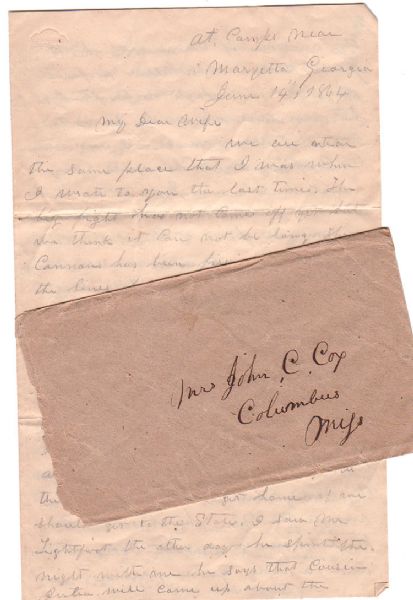 At Camp Near
Maryetta Georgia
June 14, 1864
My Dear Wife
we are near
the same place that I was when
I wrote to you the last time. The
big fight has not come off yet but
we think it can not be long. The
Cannons has been
the lines
Mrs John C. Cox
Columbus
Miss
the home
should to the State. I saw Mr
Lightfoot the other day he spent the
night with me he says that Cousin
will come up about the